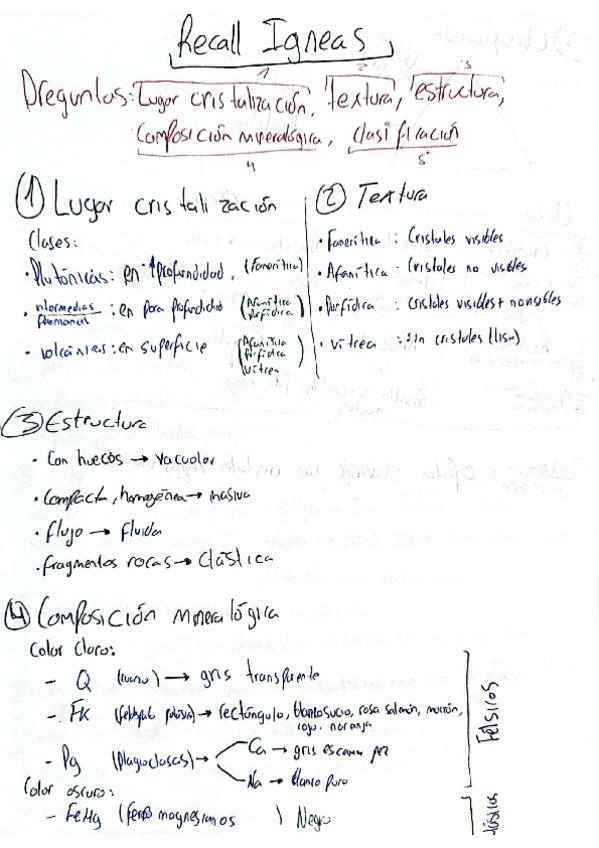 Recall Igneas
1 2 3
Preguntas: Lugar cristalización, Textura, estructura,
Composición mineralógica, clasificación
4 5
① Lugar cristalización
Clases:
· Plutónicas: en ↑profundidad. (Fanerítica)
· intermedias : en poca profundidad (Afanítica
Porfídica)
· volcánicas: en superficie (Afanítica
Porfídica
Vítrea)
② Textura
· Fanerítica : Cristales visibles
· Afanítica : Cristales no visibles
· Porfídica : cristales visibles + no visibles
· vítrea : Sin cristales (lisa)
③ Estructura
· Con huecos → vacuolar
· Compacta, homogénea → masiva
· Flujo → Fluida
· fragmentos rocas → Clástica
④ Composición mineralógica
Color Claro:
- Q (cuarzo) → gris transparente
- FK (feldespato potásico) → rectángulo, blanco sucio, rosa salmón, marrón,
rojo, naranja
- Pg (Plagioclasas) → Ca → gris escama pez
Na → blanco puro
Felsicos
Color oscuro:
- FeMg (ferro magnesianos) Negro